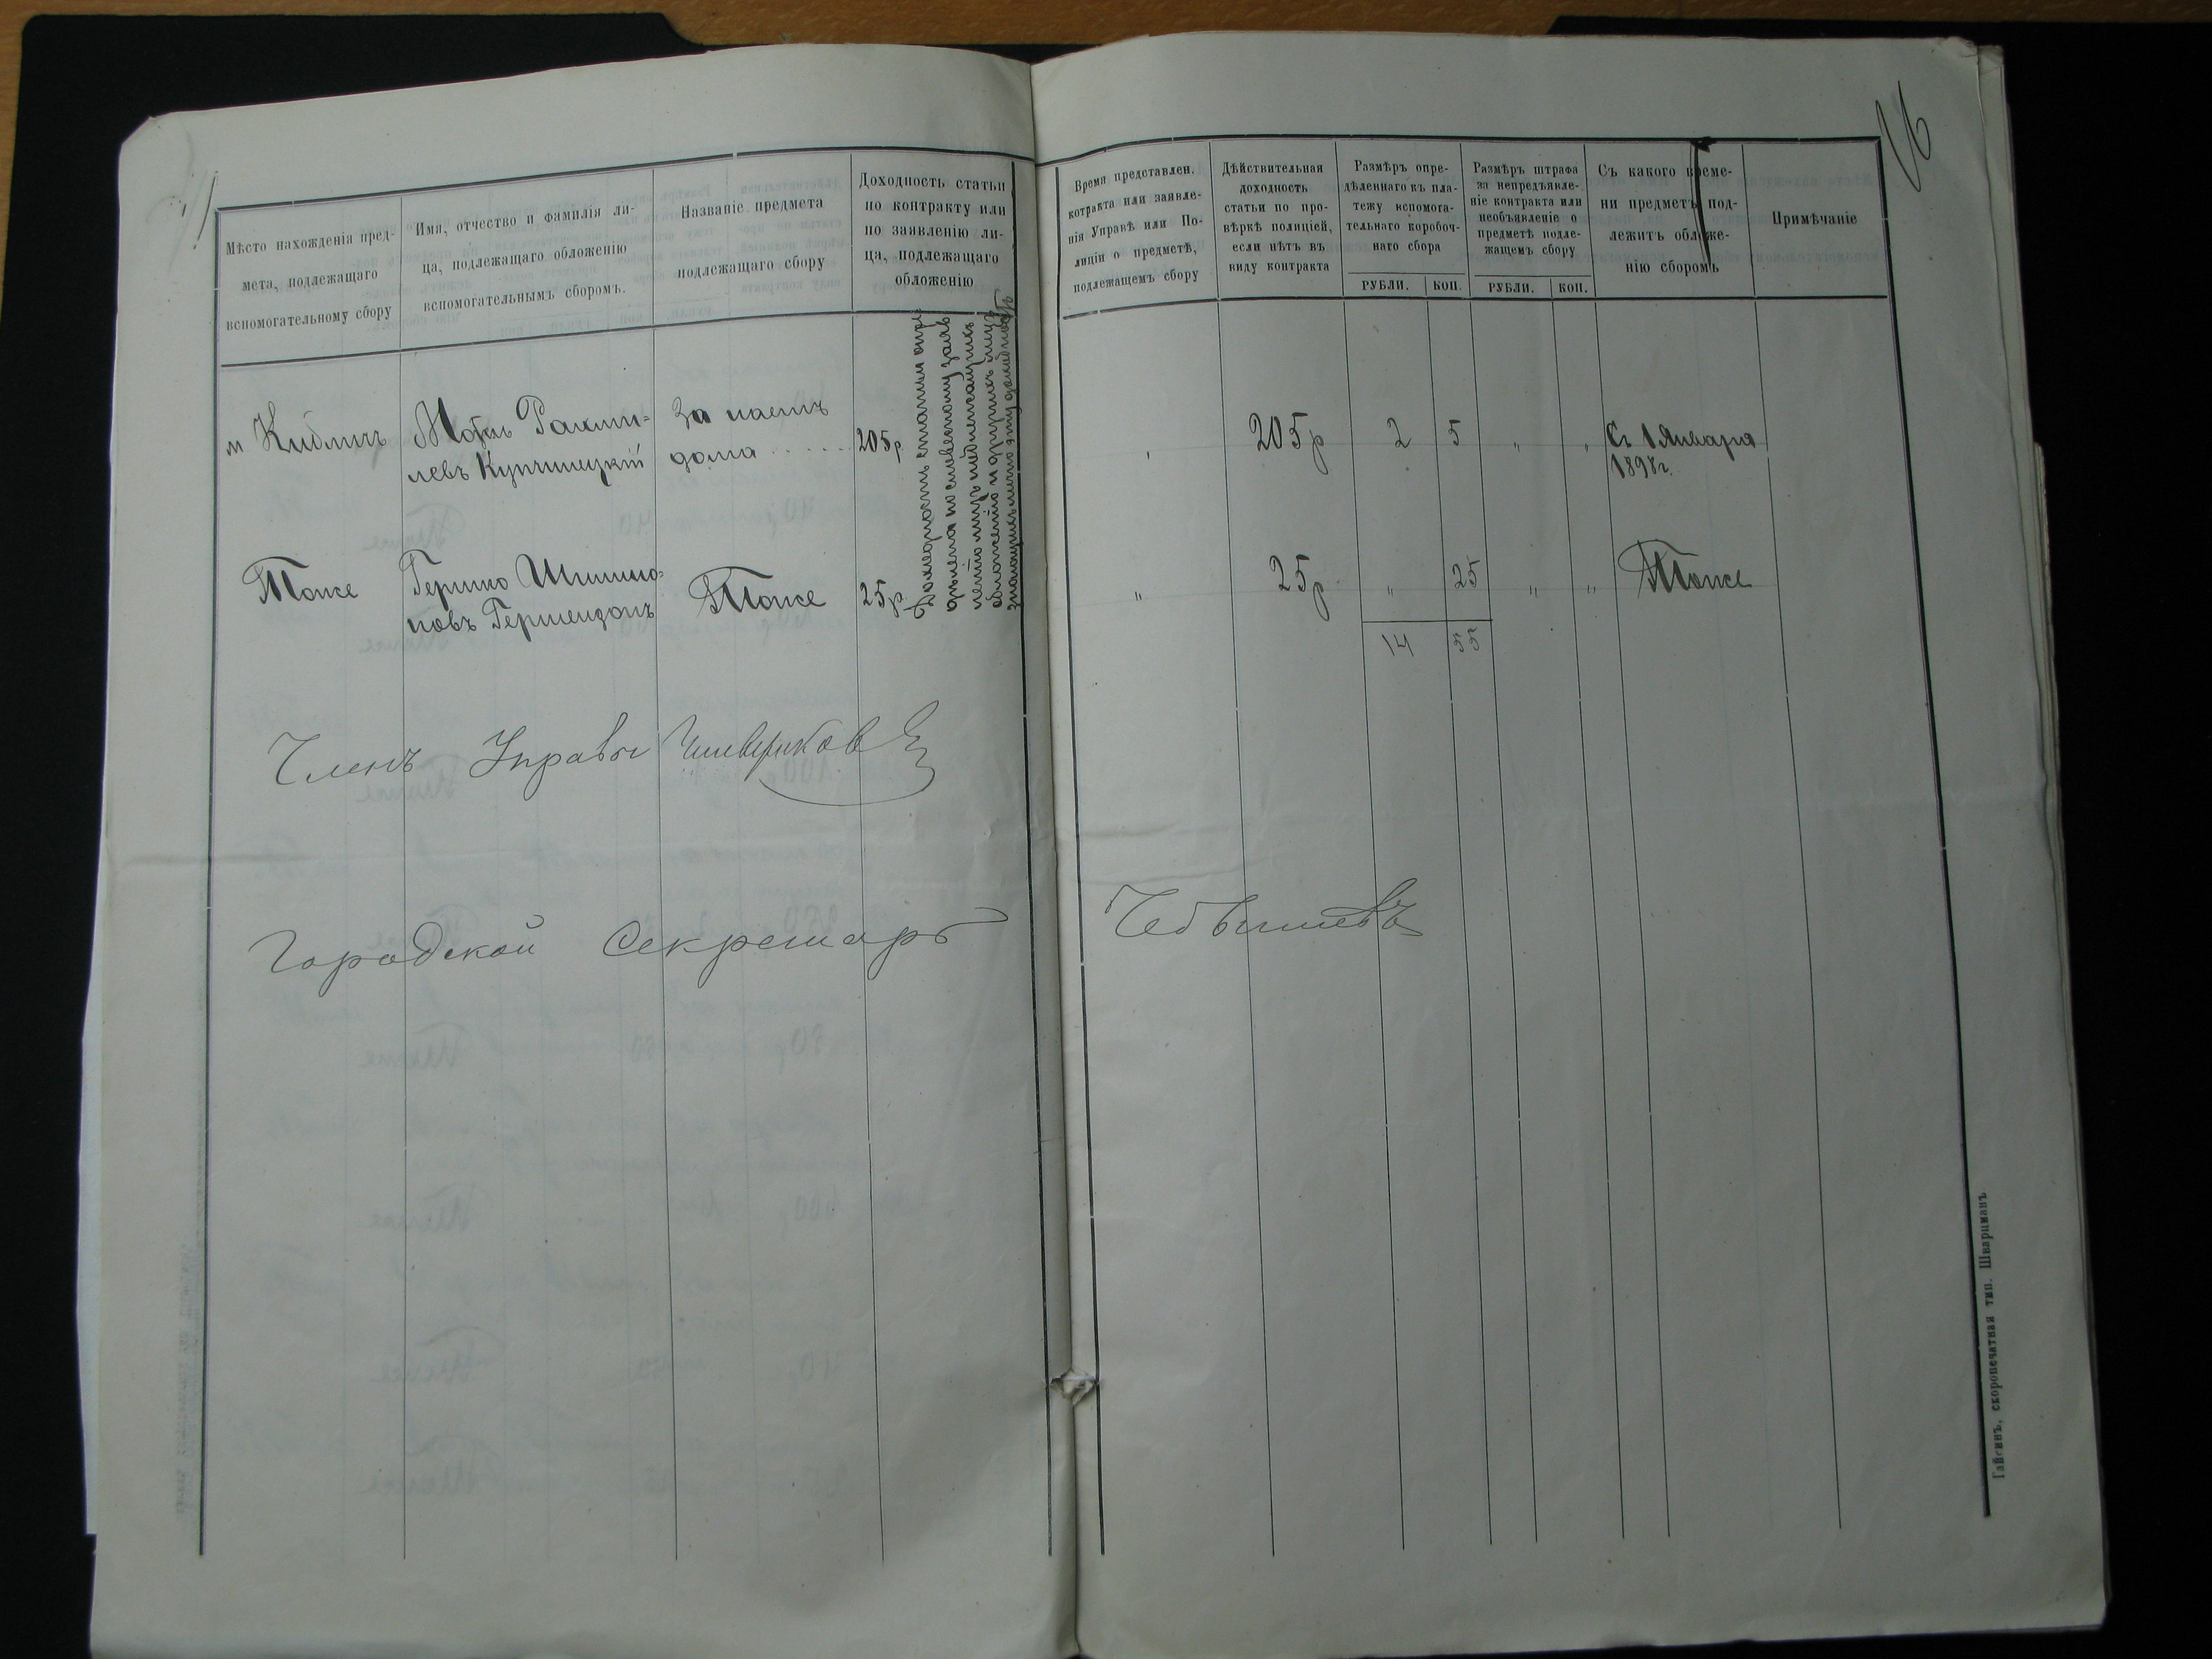 16
Мѣсто нахожденія пред-
мета, подлежащаго
вспомогательному сбору
Имя, отчество и фамилія ли-
ца, подлежащаго обложенію
вспомогательнымъ сборомъ.
Названіе предмета
подлежащаго сбору
Доходность статьи
по контракту или
по заявленію ли-
ца, подлежащаго
обложенію
Время представлен.
котракта или заявле-
нія Управѣ или По-
лиціи о предметѣ,
подлежащемъ сбору
Дѣйствительная
доходность
статьи по про-
вѣркѣ полиціей,
если нѣтъ въ
виду контракта
Размѣръ опре-
дѣленнаго къ пла-
тежу вспомога-
тельнаго коробоч-
наго сбора
РУБЛИ. КОП.
Размѣръ штрафа
за непредъявле-
ніе контракта или
необъявленіе о
предметѣ подле-
жащемъ сбору
РУБЛИ. КОП.
Съ какого време-
ни предметъ под-
лежитъ обложе-
нію сборомъ
Примѣчаніе
м Кибличъ
Рахми-
левъ Купчицкій
За наемъ
дома
205р.
205р
2 5
Съ 1 Января
1898г.
Тоже
Гершко Шлимо-
новъ Гершензонъ
Тоже
25р.
"
25р
" 25
" "
Тоже
14 55
Членъ Управы
Городской Секретарь Чебышевъ
Гайсинъ, скоропечатная тип. Шварцманъ